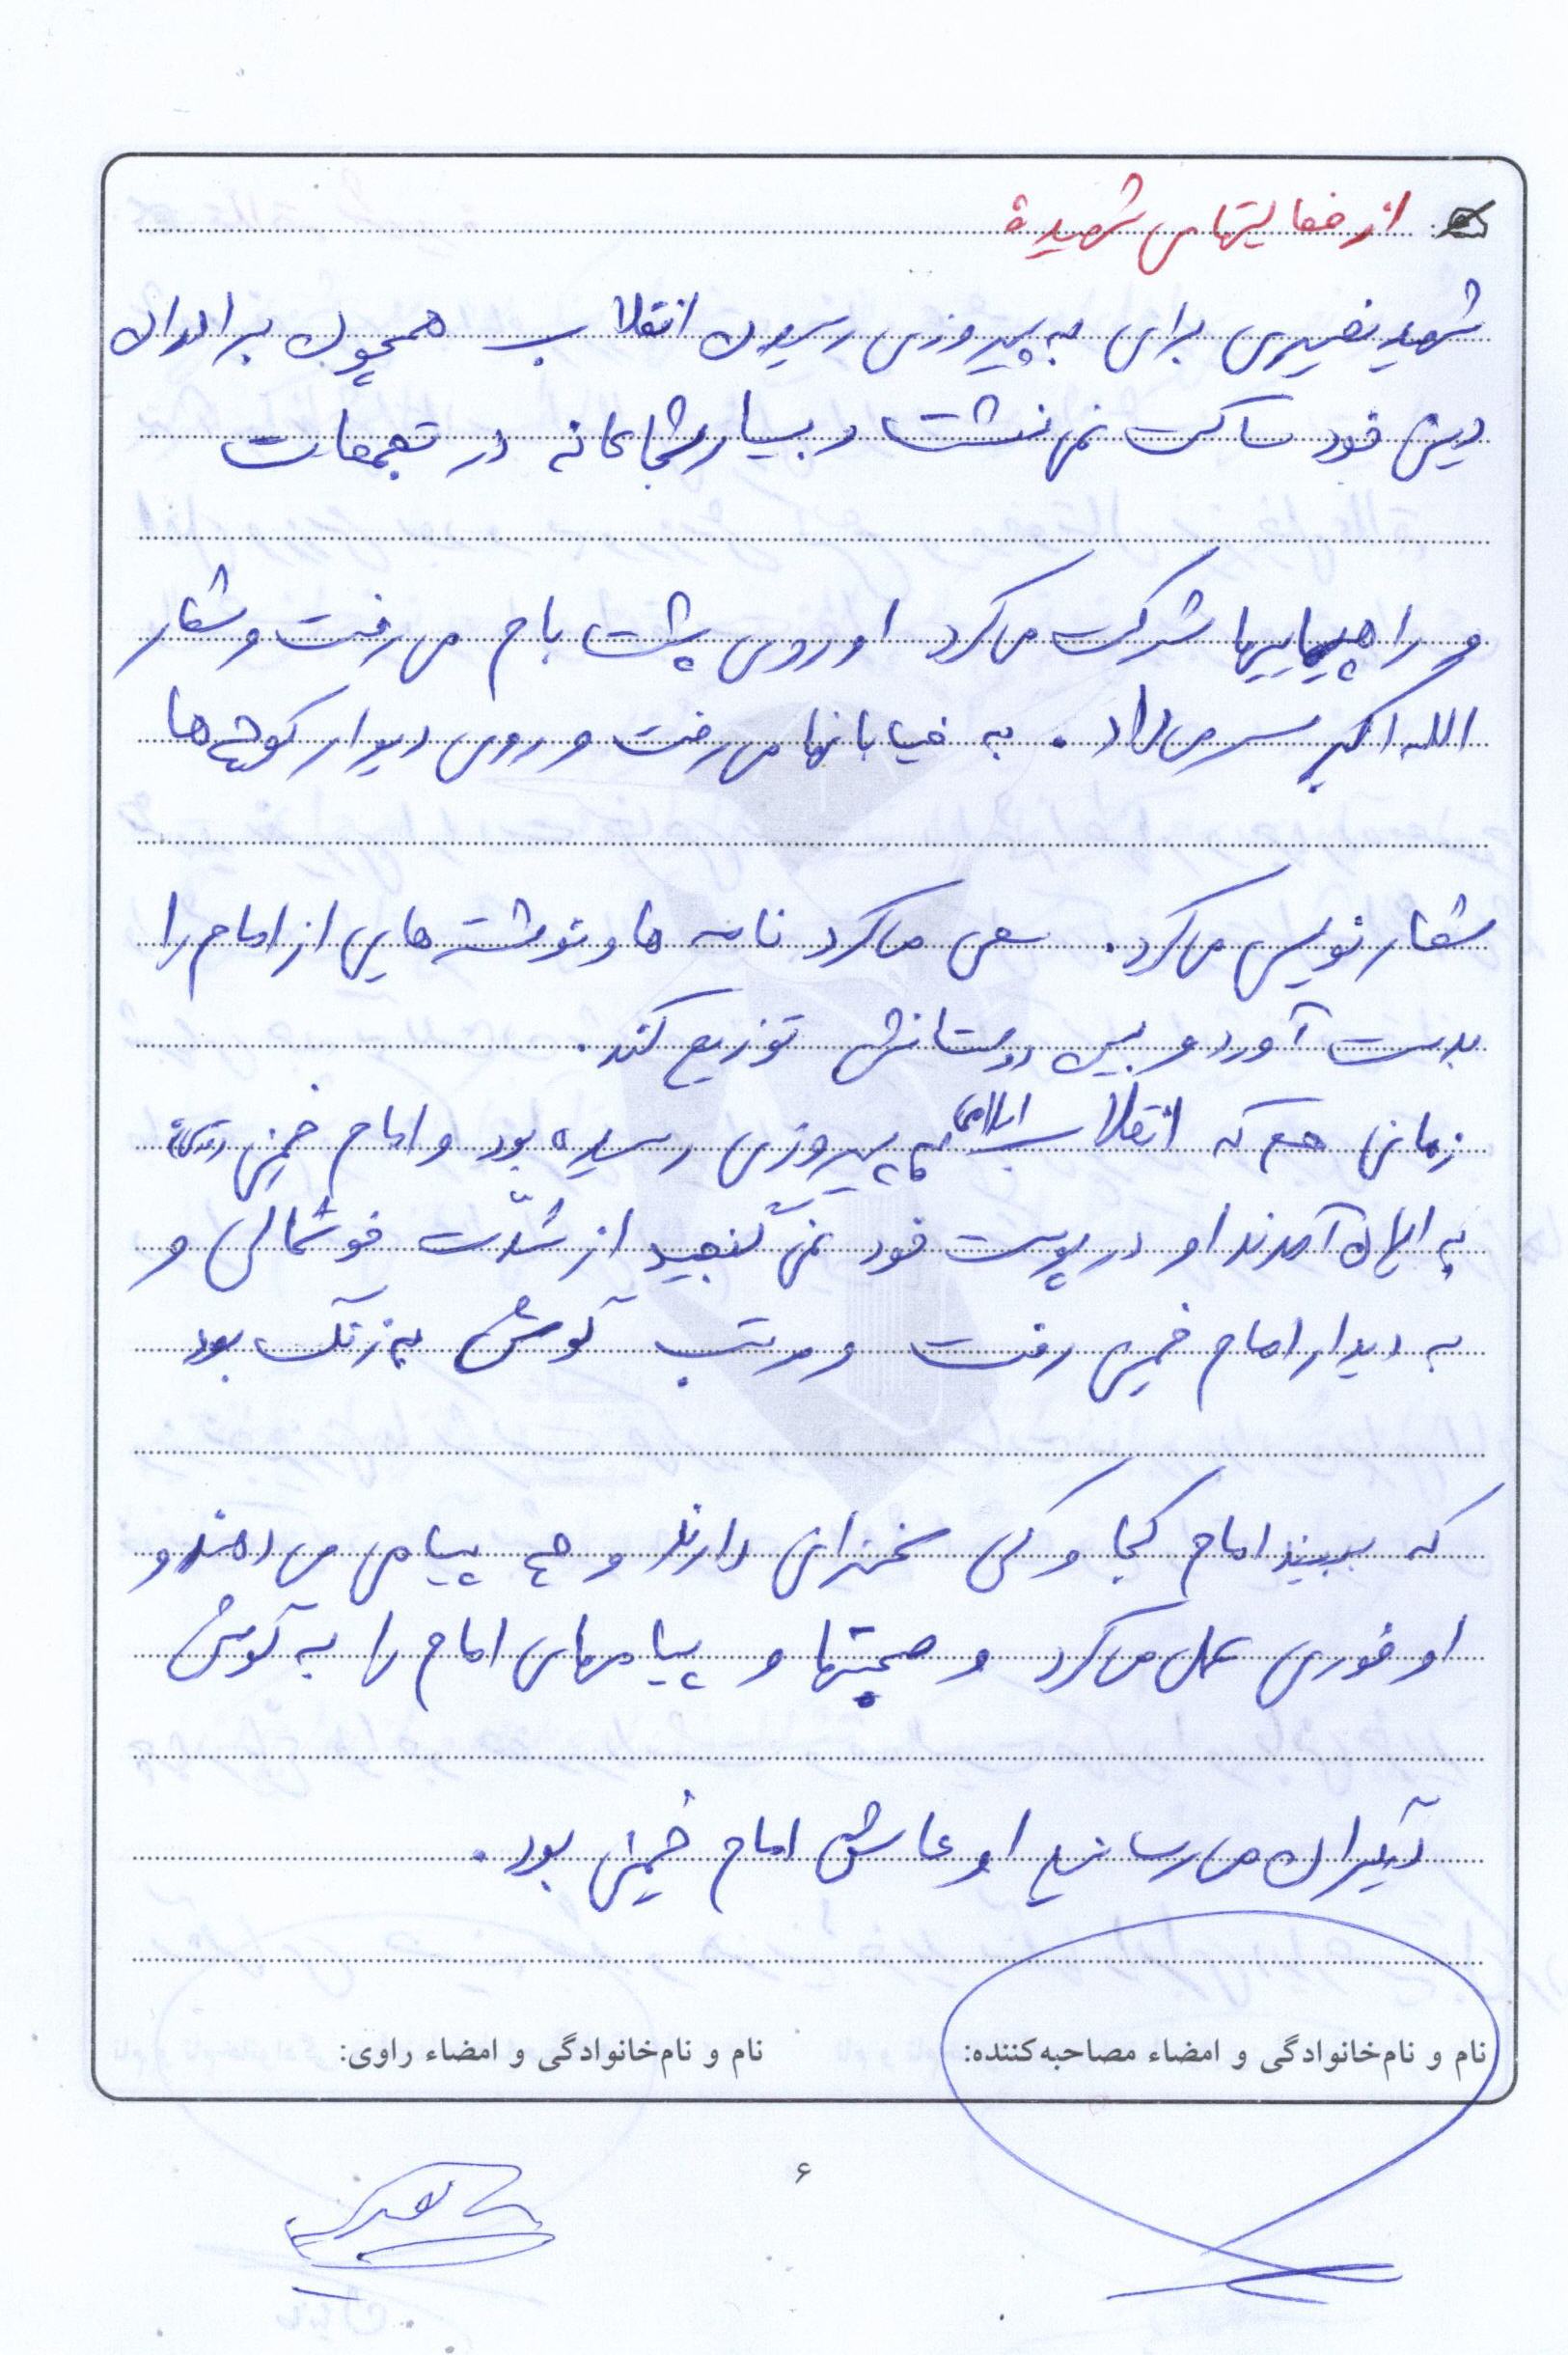 از فعالیتهای شهیده
شهید نصیری برای به پیروزی رسیدن انقلاب همچون برادران
دینی خود ساکت نمی نشست و بسیار شجاعانه در تجمعات
و راهپیماییها شرکت می کرد او روی پشت بام می رفت و شعار
الله اکبر سر می داد. به خیابانها می رفت و روی دیوار کوچه ها
شعار نویسی می کرد. سعی می کرد نامه ها و نوشته هایی از امام را
بدست آورد و بین دوستانش توزیع کند.
زمانی هم که انقلاب اسلامی به پیروزی رسیده بود و امام خمینی (ره)
به ایران آمدند او در پوست خود نمی گنجید از شدّت خوشحالی و
به دیدار امام خمینی رفت و مرتب گوش به زنگ بود
که ببیند امام کجا و کی سخنرانی دارند و چه پیامی می دهند و
او فوری عمل می کرد و صحبتها و پیامهای امام را به گوش
دیگران می رسانید او عاشق امام خمینی بود.
نام و نام‌خانوادگی و امضاء مصاحبه‌کننده:
نام و نام‌خانوادگی و امضاء راوی:
۶